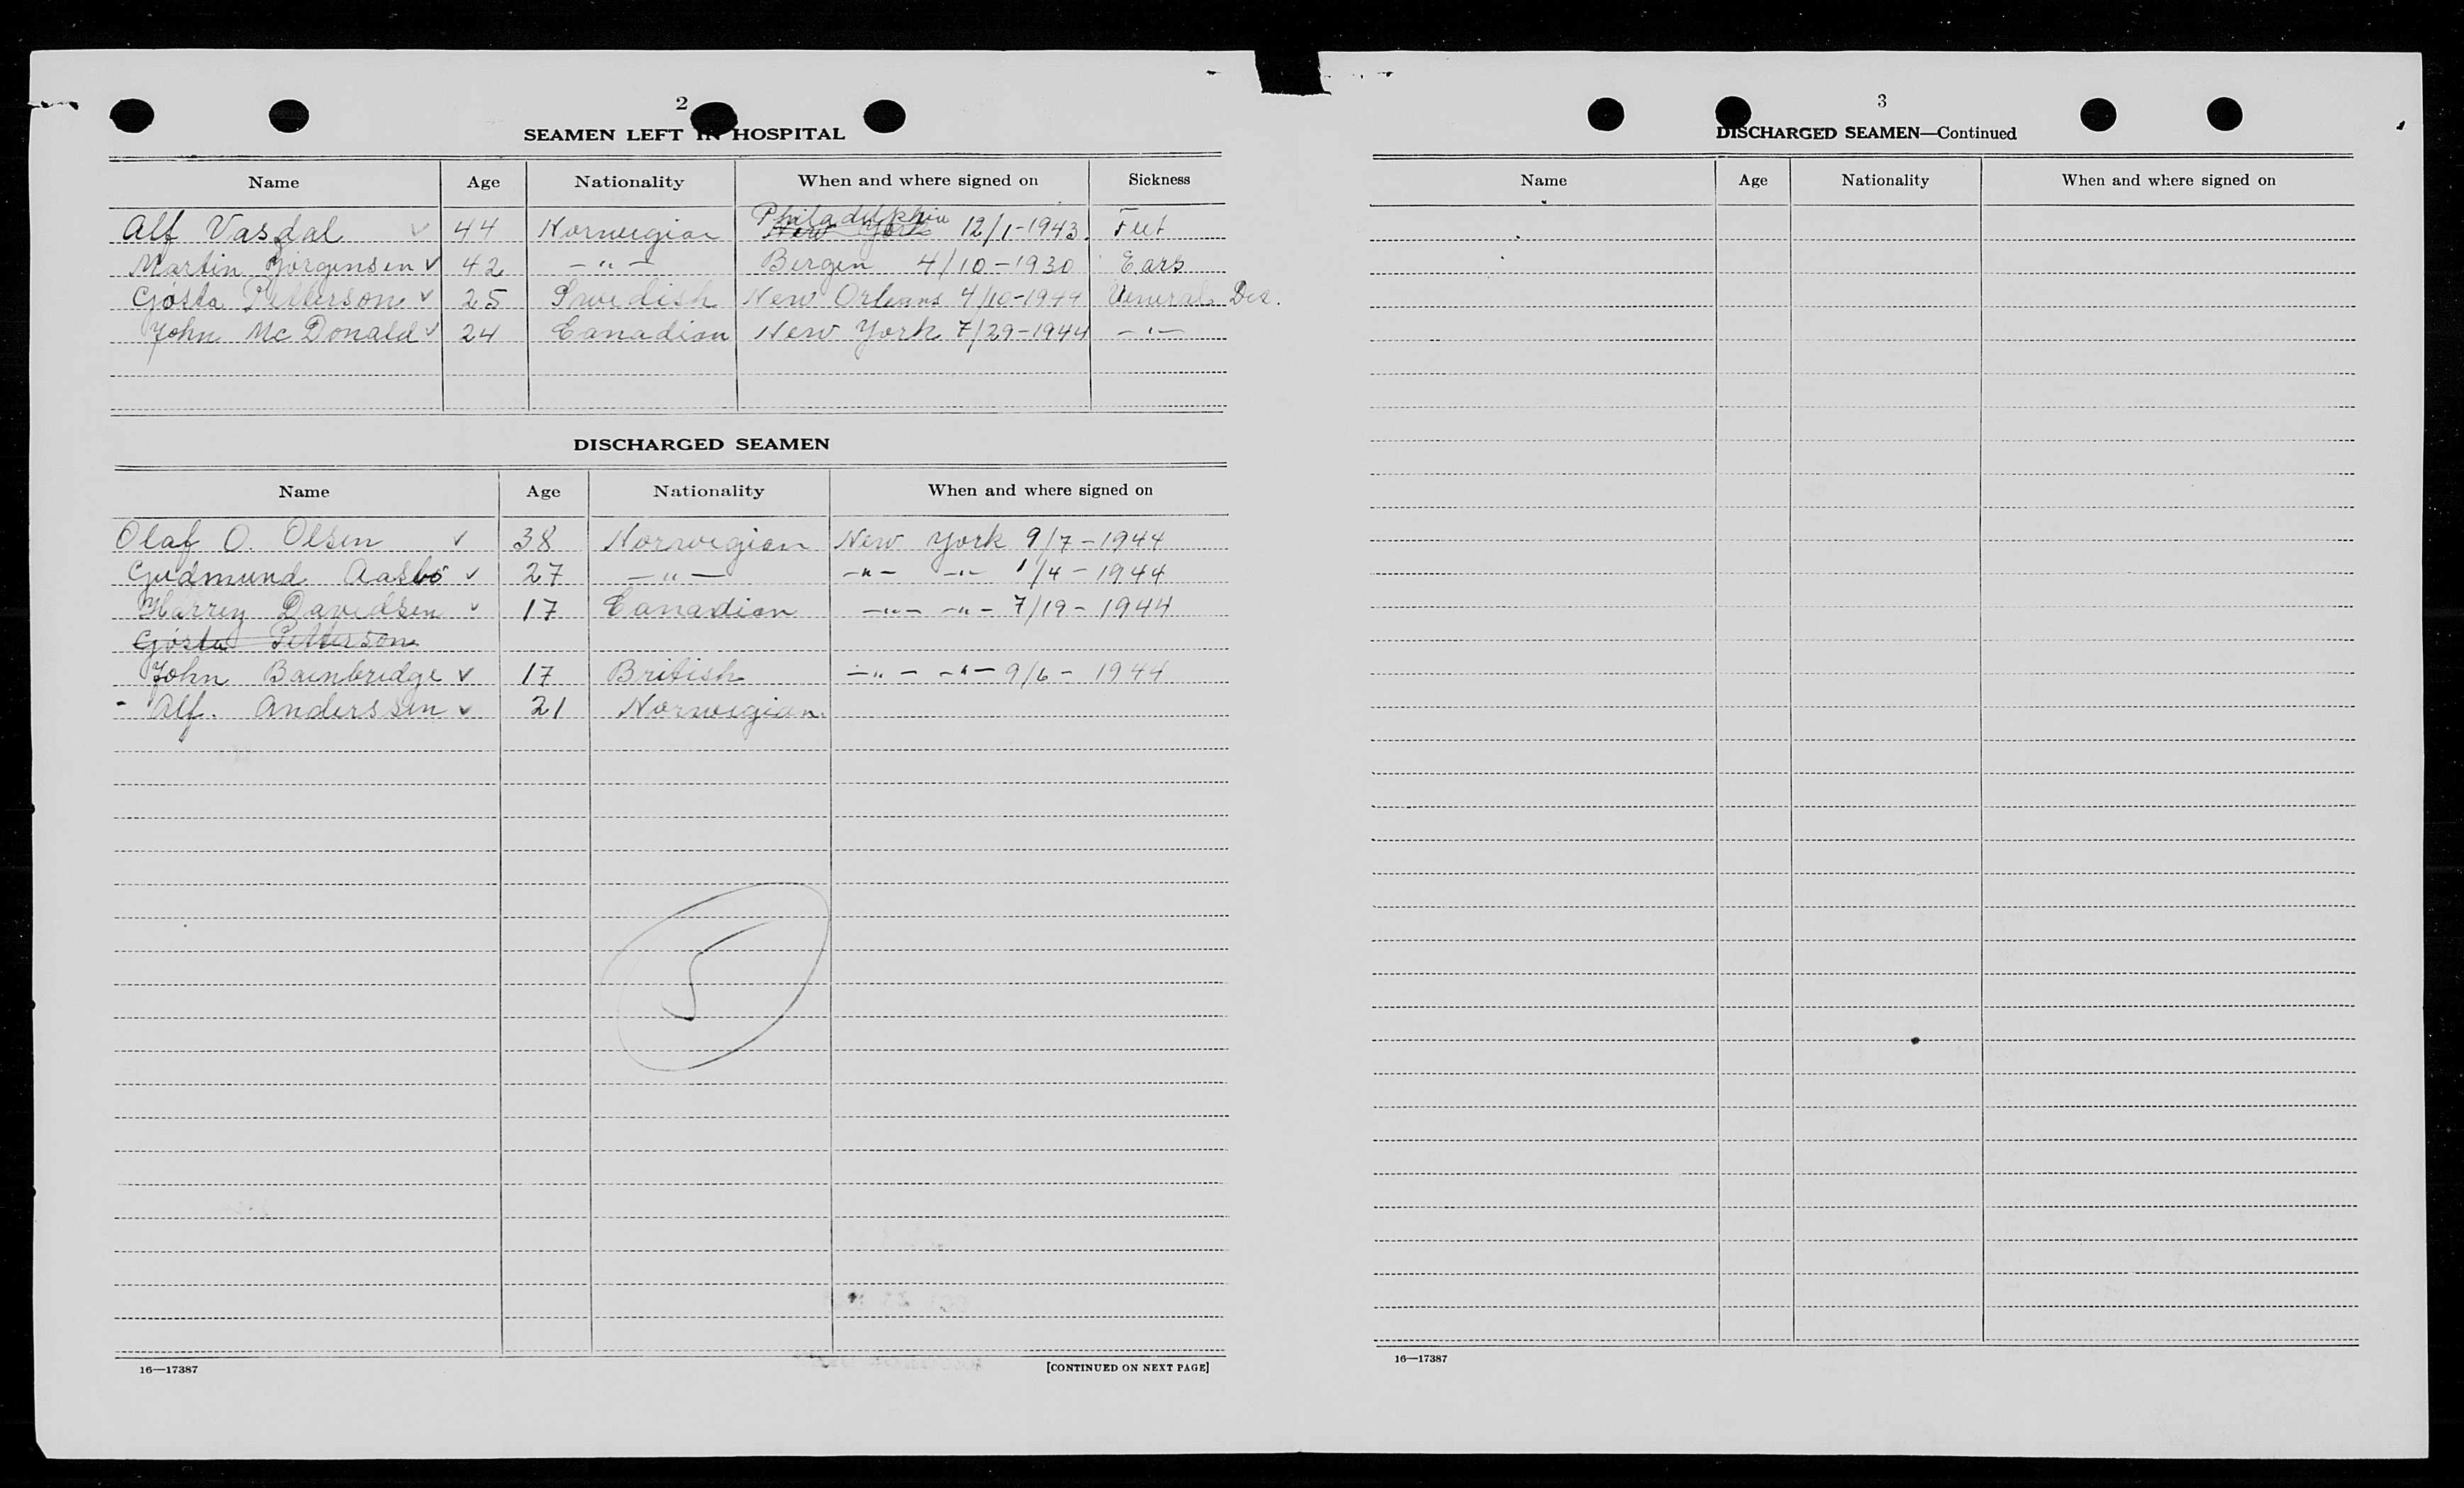 2
SEAMEN LEFT IN HOSPITAL
Name Age Nationality When and where signed on Sickness
Philadelphia
Alf Vasdal ✓ 44 Norwegian New York 12/1-1943. Feet
Martin Jörgensen ✓ 42 -"- Bergen 4/10-1930 Ears
Gösta Petterson ✓ 25 Swedish New Orleans 4/10-1944 Veneral. Des.
John Mc Donald ✓ 24 Canadian New York 7/29-1944 -"-
DISCHARGED SEAMEN
Name Age Nationality When and where signed on
Olaf O. Olsen ✓ 38 Norwegian New York 9/7-1944
Gudmund Aasbö ✓ 27 -"- -"- -"- 1/4-1944
Harrey Davidsen ✓ 17 Canadian -"- -"- 7/19-1944
Gösta Petterson
John Bainbridge ✓ 17 British -"- -"- 9/6-1944
- Alf. Anderssen ✓ 21 Norwegian.
5
16—17387 [CONTINUED ON NEXT PAGE]
3
DISCHARGED SEAMEN—Continued
Name Age Nationality When and where signed on
16—17387